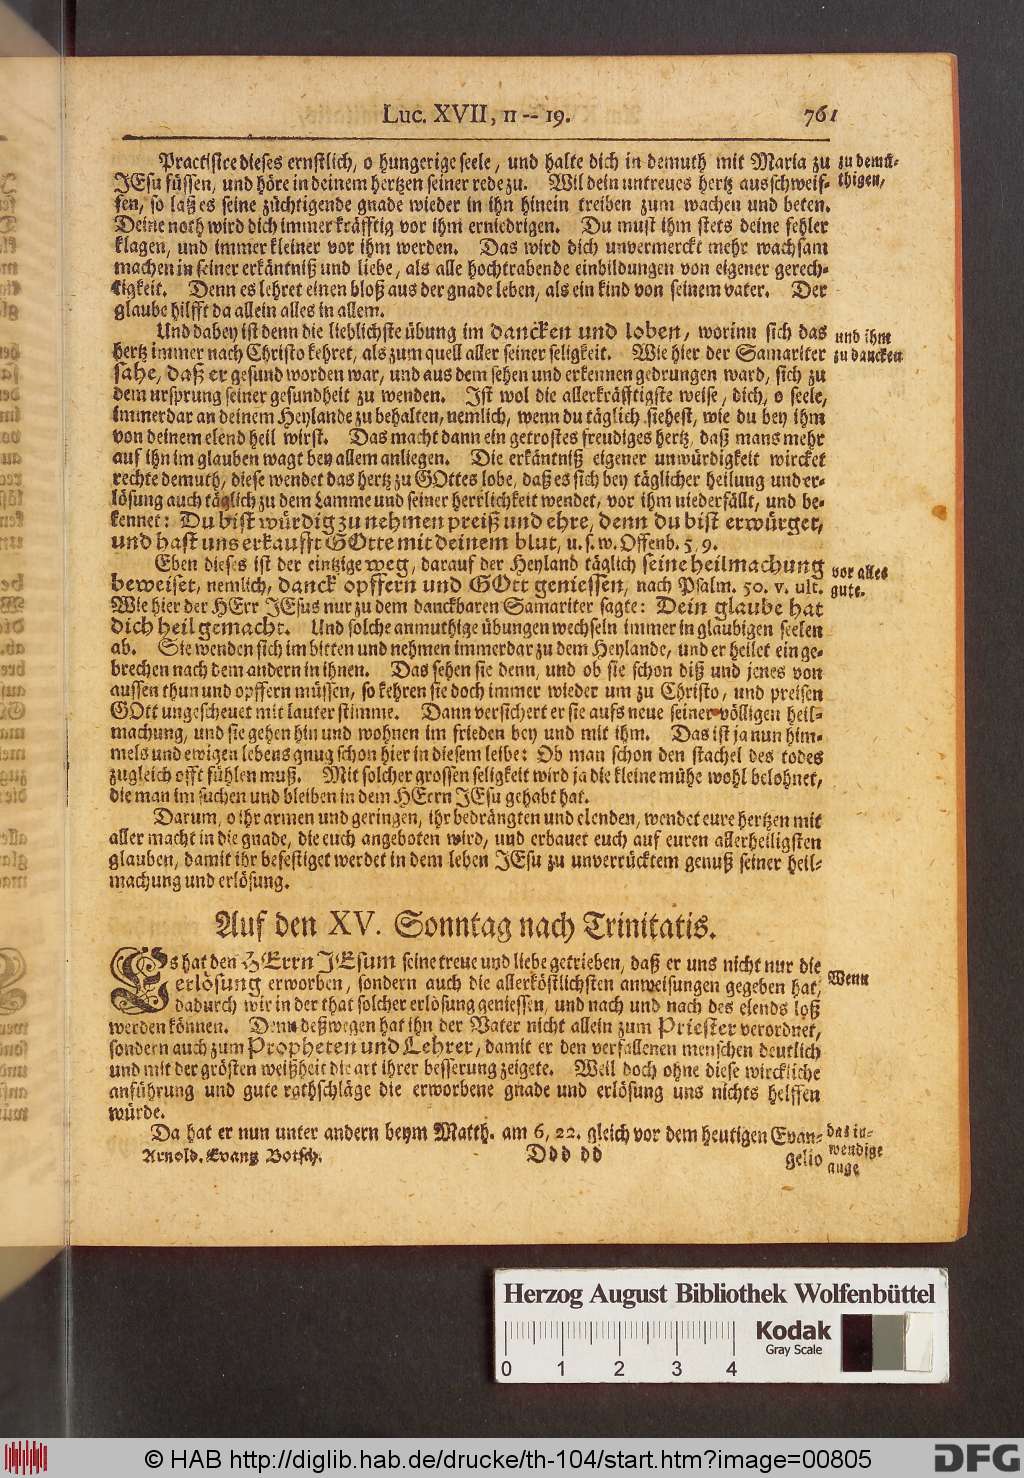 Luc. XVII, 11 -- 19. 761
Practisire dieses ernstlich, o hungerige seele, und halte dich in demuth mit Maria zu
JEsu füssen, und höre in deinem hertzen seiner rede zu. Wil dein untreues hertz ausschweif-
fen, so laß es seine züchtigende gnade wieder in ihn hinein treiben zum wachen und beten.
Deine noth wird dich immer kräfftig vor ihm erniedrigen. Du must ihm stets deine fehler
klagen, und immer kleiner vor ihm werden. Das wird dich unvermerckt mehr wachsam
machen in seiner erkäntniß und liebe, als alle hochtrabende einbildungen von eigener gerech-
tigkeit. Denn es lehret einen bloß aus der gnade leben, als ein kind von seinem vater. Der
glaube hilfft da allein alles in allem.
zu demü-
thigen,
Und dabey ist denn die lieblichste übung im dancken und loben, worinn sich das
hertz immer nach Christo kehret, als zum quell aller seiner seligkeit. Wie hier der Samariter
sahe, daß er gesund worden war, und aus dem sehen und erkennen gedrungen ward, sich zu
dem ursprung seiner gesundheit zu wenden. Ist wol die allerkräfftigste weise, dich, o seele,
immerdar an deinem Heylande zu behalten, nemlich, wenn du täglich siehest, wie du bey ihm
von deinem elend heil wirst. Das macht dann ein getrostes freudiges hertz, daß mans mehr
auf ihn im glauben wagt bey allem anliegen. Die erkäntniß eigener unwürdigkeit wircket
rechte demuth, diese wendet das hertz zu GOttes lobe, daß es sich bey täglicher heilung und er-
lösung auch täglich zu dem Lamme und seiner herrlichkeit wendet, vor ihm niederfällt, und be-
kennet: Du bist würdig zu nehmen preiß und ehre, denn du bist erwürget,
und hast uns erkaufft GOtte mit deinem blut, u. s. w. Offenb. 5, 9.
und ihm
zu dancken
Eben dieses ist der eintzige weg, darauf der Heyland täglich seine heilmachung
beweiset, nemlich, danck opffern und GOtt geniessen, nach Psalm. 50. v. ult.
Wie hier der HErr JEsus nur zu dem danckbaren Samariter sagte: Dein glaube hat
dich heil gemacht. Und solche anmuthige übungen wechseln immer in gläubigen seelen
ab. Sie wenden sich im bitten und nehmen immerdar zu dem Heylande, und er heilet ein ge-
brechen nach dem andern in ihnen. Das sehen sie denn, und ob sie schon diß und jenes von
aussen thun und opffern müssen, so kehren sie doch immer wieder um zu Christo, und preisen
GOtt ungescheuet mit lauter stimme. Dann versichert er sie aufs neue seiner völligen heil-
machung, und sie gehen hin und wohnen im frieden bey und mit ihm. Das ist ja nun him-
mels und ewigen lebens gnug schon hier in diesem leibe: Ob man schon den stachel des todes
zugleich offt fühlen muß. Mit solcher grossen seligkeit wird ja die kleine mühe wohl belohnet,
die man im suchen und bleiben in dem HErrn JEsu gehabt hat.
vor alles
gute.
Darum, o ihr armen und geringen, ihr bedrängten und elenden, wendet eure hertzen mit
aller macht in die gnade, die euch angeboten wird, und erbauet euch auf euren allerheiligsten
glauben, damit ihr befestiget werdet in dem leben JEsu zu unverrücktem genuß seiner heil-
machung und erlösung.
Auf den XV. Sonntag nach Trinitatis.
Es hat den HErrn JEsum seine treue und liebe getrieben, daß er uns nicht nur die
erlösung erworben, sondern auch die allerköstlichsten anweisungen gegeben hat,
dadurch wir in der that solcher erlösung geniessen, und nach und nach des elends loß
werden können. Denn deßwegen hat ihn der Vater nicht allein zum Priester verordnet,
sondern auch zum Propheten und Lehrer, damit er den verfallenen menschen deutlich
und mit der grösten weißheit die art ihrer besserung zeigete. Weil doch ohne diese wirckliche
anführung und gute rathschläge die erworbene gnade und erlösung uns nichts helffen
würde.
Wenn
Da hat er nun unter andern beym Matth. am 6, 22. gleich vor dem heutigen Evan-
das in-
wendige
auge
Arnold. Evang. Botsch. Ddd dd gelio
Herzog August Bibliothek Wolfenbüttel
Kodak
Gray Scale
0 1 2 3 4
© HAB http://diglib.hab.de/drucke/th-104/start.htm?image=00805
DFG